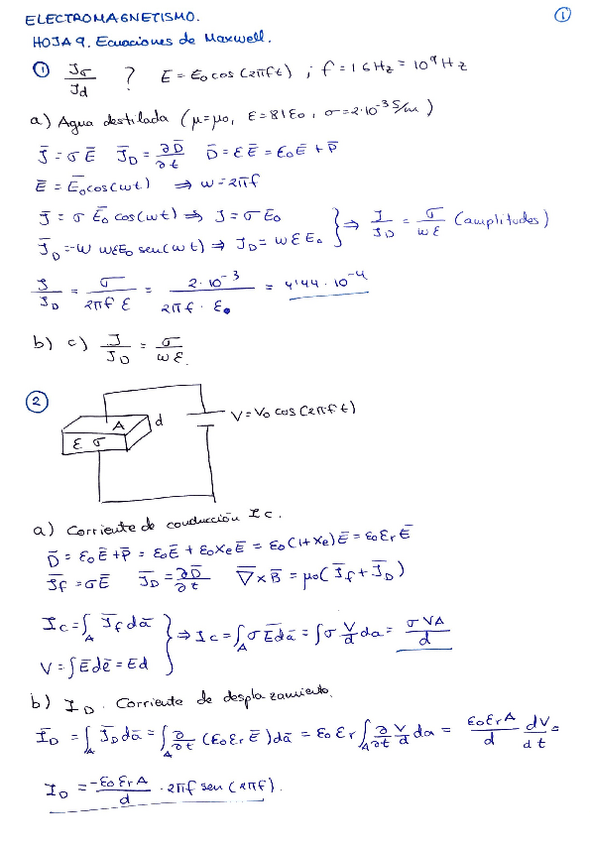 ELECTROMAGNETISMO. ①
HOJA 9. Ecuaciones de Maxwell.
① Jσ/Jd ? E = E₀ cos(2πft) ; f = 1 GHz = 10⁹ Hz
a) Agua destilada (μ=μ₀, ε=81ε₀, σ=2·10⁻³ S/m)
J̄ = σĒ J̄_D = ∂D̄/∂t D̄ = εĒ = ε₀Ē + P̄
Ē = Ē₀cos(ωt) ⇒ ω = 2πf
J̄ = σĒ₀ cos(ωt) ⇒ J = σE₀
J̄_D = -ω ωεE₀ sen(ωt) ⇒ J_D = ωεE₀ } ⇒ J/J_D = σ/ωε (amplitudes)
J/J_D = σ/2πfε = 2·10⁻³/2πf·ε₀ = 4'44·10⁻⁴
b) c) J/J_D = σ/ωε.
②
A d V = V₀ cos(2πft)
ε σ
a) Corriente de conducción Ic.
D̄ = ε₀Ē + P̄ = ε₀Ē + ε₀XeĒ = ε₀(1+Xe)Ē = ε₀εrĒ
J̄f = σĒ J̄_D = ∂D̄/∂t ∇̄×B̄ = μ₀(J̄f + J̄_D)
Ic = ∫_A J̄f dā
V = ∫Ēdē = Ed } ⇒ Ic = ∫_A σĒdā = ∫σ V/d da = σVA/d
b) I_D. Corriente de desplazamiento.
I_D = ∫_A J̄_D dā = ∫_A ∂/∂t (ε₀εrĒ)dā = ε₀εr∫_A ∂/∂t V/d da = ε₀εrA/d dV/dt =
I_D = -ε₀εrA/d · 2πf sen(2πf).